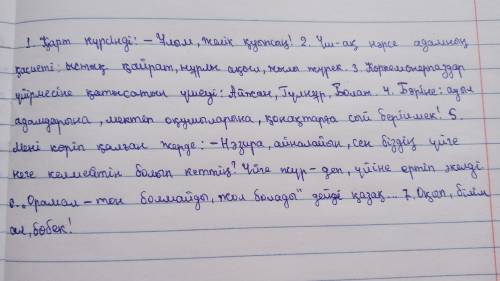 1. Қарт күрсінді: – Ұлам, жолық құтқақ! 2. Үш-ақ нәрсе адамның
қасиеті: ыстық қайрат, нұрлы ақыл, жылы жүрек. 3. Көркемөнерпаздар
үйірмесіне қатысатын үшеуі: Айжан, Гүлнұр, Болат. 4. Бәріне: ауыл
адамдарына, мектеп оқушыларына, қонақтарға сый берілмек! 5.
Мені көріп қалған жерде: – Нәзира, айналайын, сен біздің үйге
неге келмейтін болып кеттің? Үйге жүр – деп, үйіне ертіп әкелді
6. „Орамал – тон болмайды, жол болады" дейді қазақ... 7. Оқып, білім
ал, бөбек!